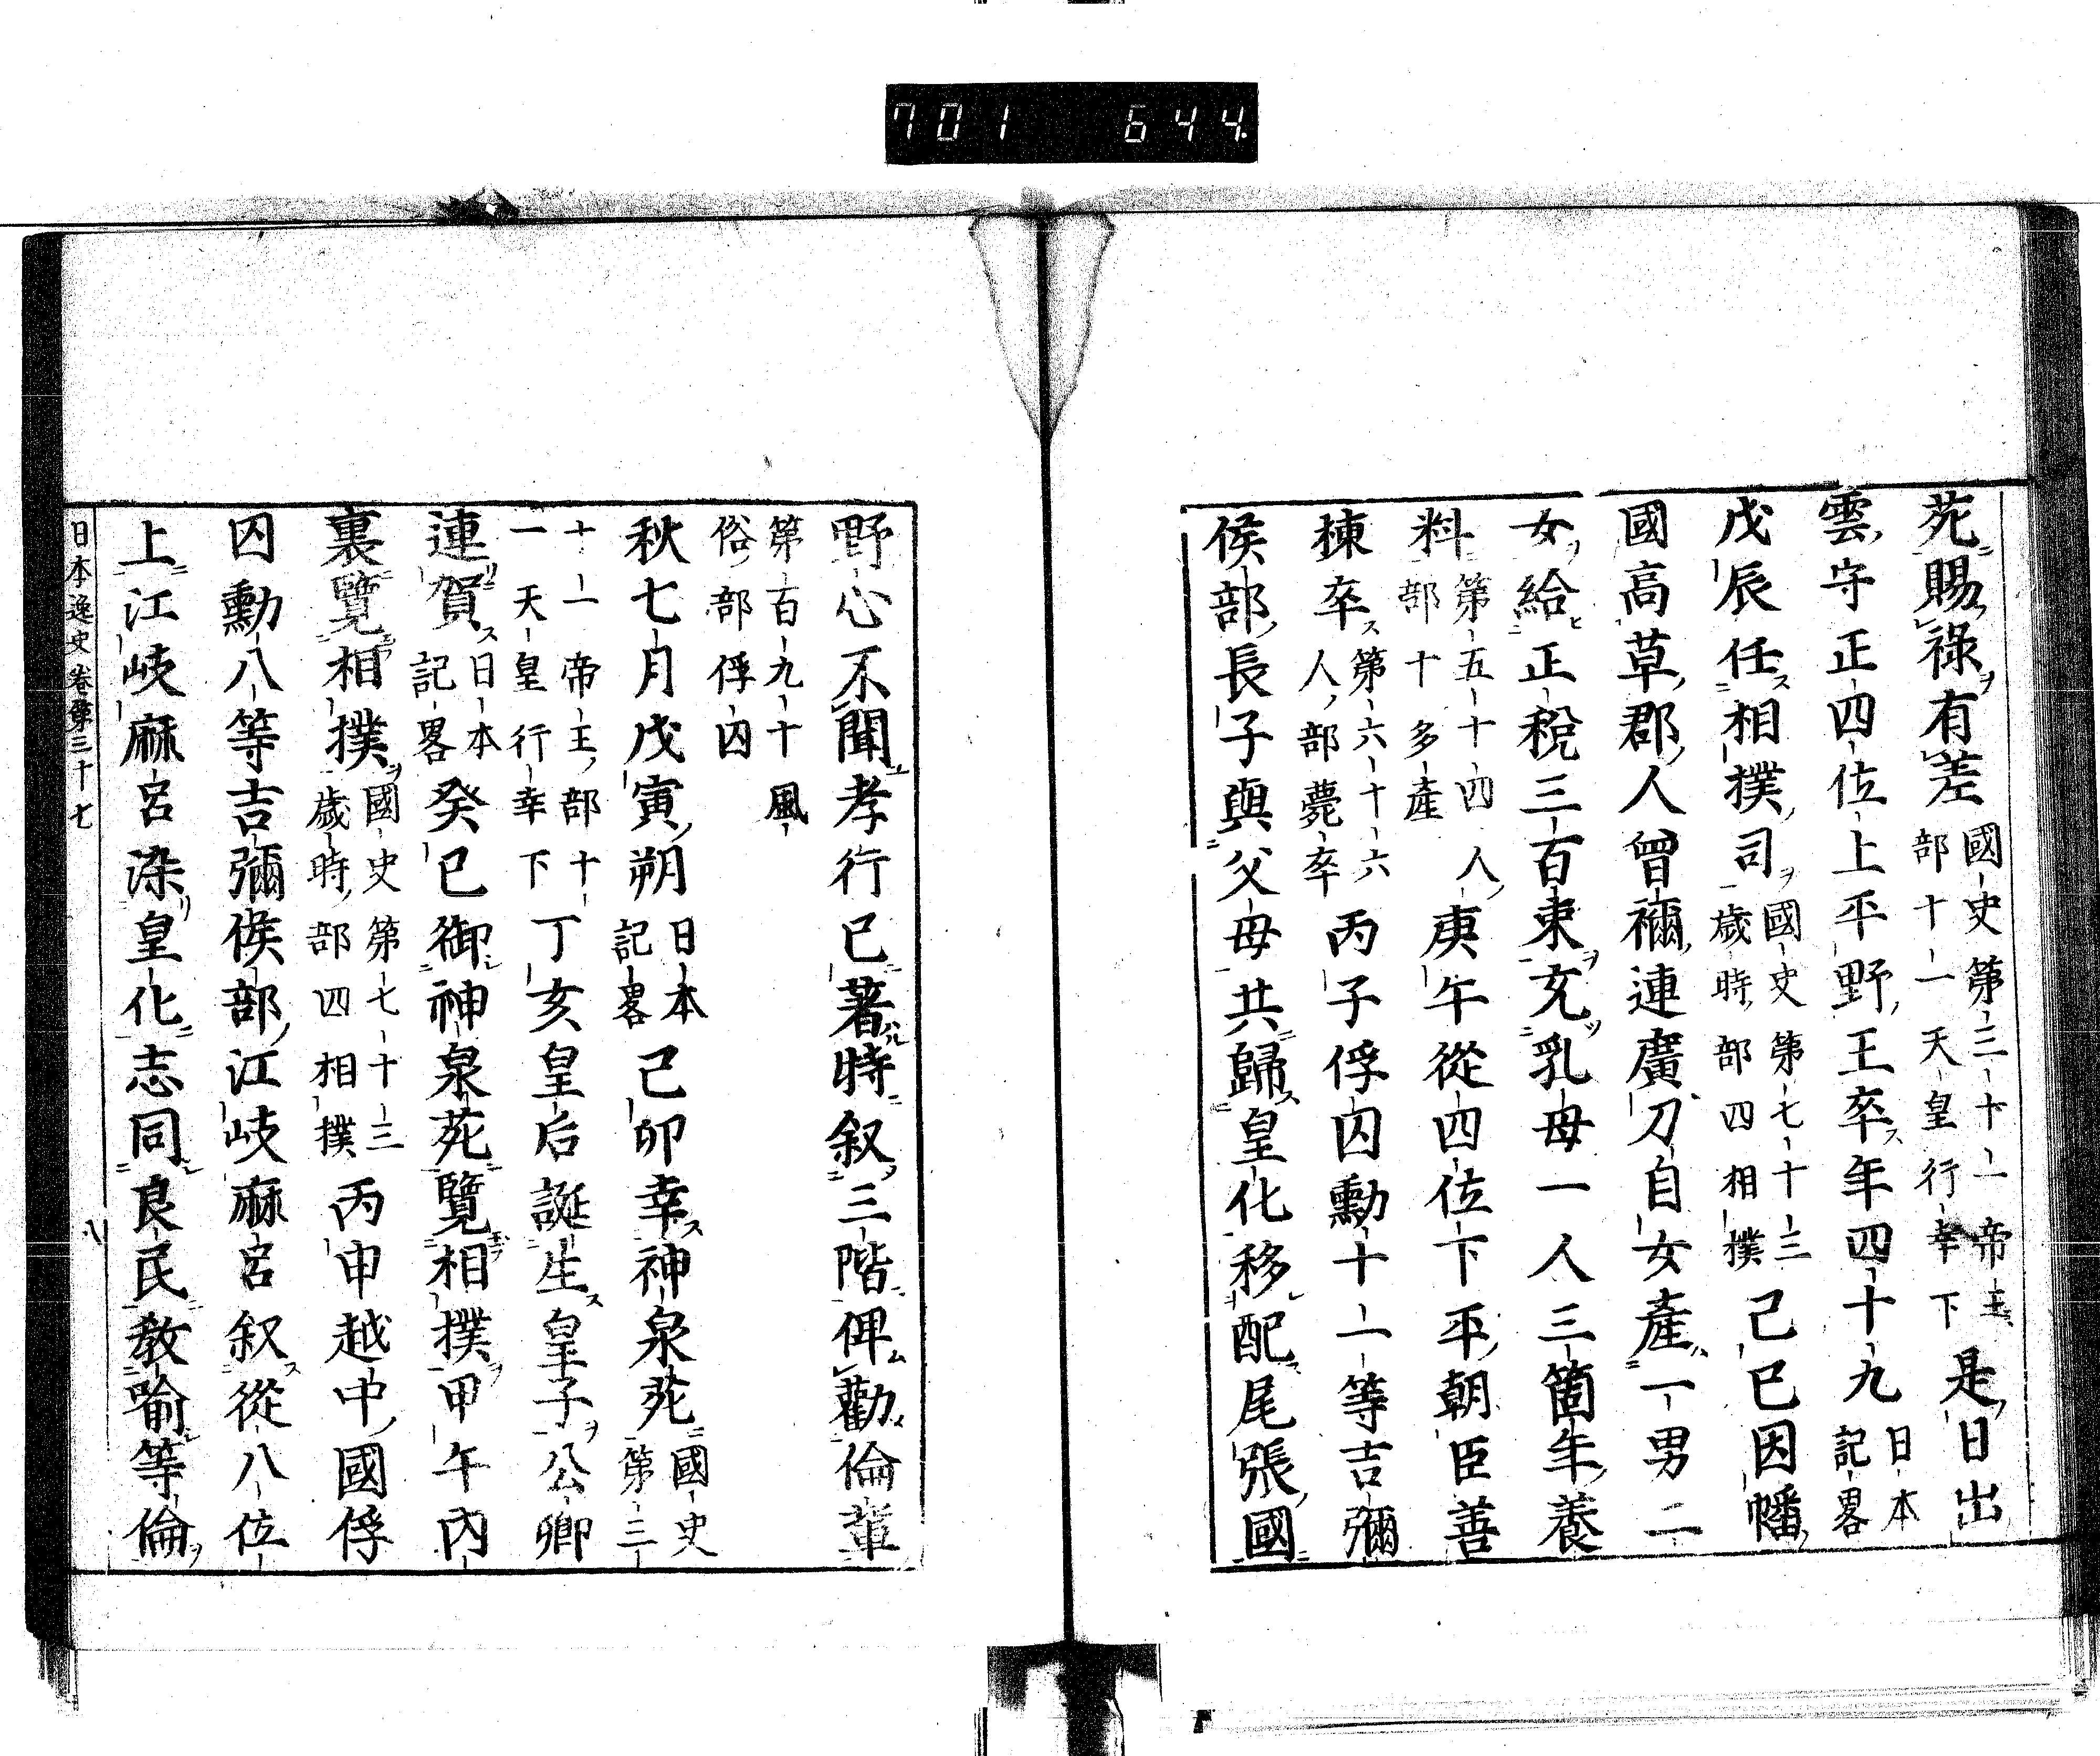 701 644.
苑賜祿有差國史第三十一帝王部十一天皇行幸下是日出
雲守正四位上平野王卒年四十九日本記畧
戊辰任相撲司國史第七十三歲時部四相撲己巳因幡
國高草郡人曾禰連廣刀自女產一男二
女給正稅三百束充乳母一人三箇年養
料第五十四人部十多產庚午從四位下平朝臣善
棟卒第六十六人部薨卒丙子俘囚勳十一等吉彌
侯部長子與父母共歸皇化移配尾張國
野心不聞孝行已著特叙三階俾勸倫輩
第百九十風俗部俘囚
秋七月戊寅朔日本記畧己卯幸神泉苑國史第三
十一帝王部十一天皇行幸下丁亥皇后誕生皇子公卿
連賀日本記畧癸巳御神泉苑覽相撲甲午內
裏覽相撲國史第七十三歲時部四相撲丙申越中國俘
囚勳八等吉彌侯部江岐麻呂叙從八位
上江岐麻呂染皇化志同良民教喻等倫
日本逸史卷第三十七 八